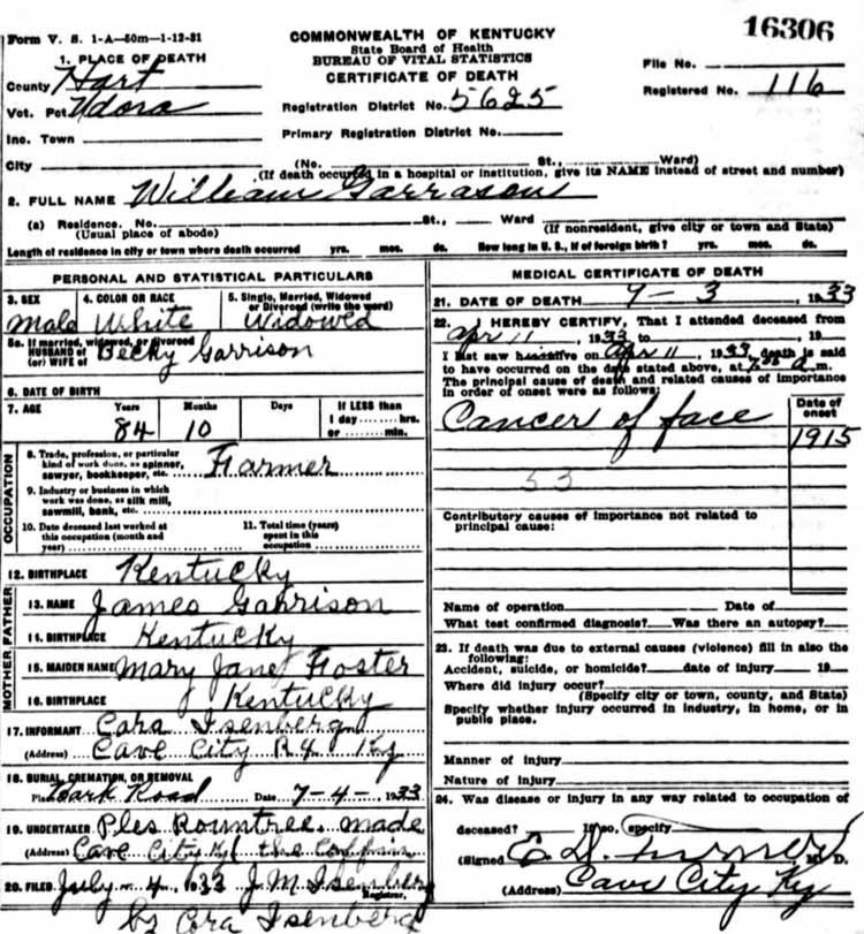 16306
Form V. S. 1-A—50m—1-12-31
COMMONWEALTH OF KENTUCKY
State Board of Health
BUREAU OF VITAL STATISTICS
CERTIFICATE OF DEATH
File No.
Registered No. 116
1. PLACE OF DEATH
County Hart
Vot. Pct. Udora
Registration District No. 5625
Inc. Town
Primary Registration District No.
City (No. St., Ward)
(If death occurred in a hospital or institution, give its NAME instead of street and number)
2. FULL NAME William Garrason
(a) Residence. No. St., Ward
(Usual place of abode) (If nonresident, give city or town and State)
Length of residence in city or town where death occurred yrs. mos. ds. How long in U. S., if of foreign birth? yrs. mos. ds.
PERSONAL AND STATISTICAL PARTICULARS
3. SEX 4. COLOR OR RACE 5. Single, Married, Widowed
or Divorced (write the word)
Male White Widowed
5a. If married, widowed, or divorced
HUSBAND of
(or) WIFE of Becky Garrison
6. DATE OF BIRTH
7. AGE Years Months Days If LESS than
1 day hrs.
or min.
84 10
OCCUPATION
8. Trade, profession, or particular
kind of work done, as spinner,
sawyer, bookkeeper, etc. Farmer
9. Industry or business in which
work was done, as silk mill,
sawmill, bank, etc.
10. Date deceased last worked at
this occupation (month and
year)
11. Total time (years)
spent in this
occupation
12. BIRTHPLACE Kentucky
FATHER
13. NAME James Garrison
14. BIRTHPLACE Kentucky
MOTHER
15. MAIDEN NAME Mary Jane Foster
16. BIRTHPLACE Kentucky
17. INFORMANT Cora Isenberg
(Address) Cave City R4 Ky
18. BURIAL, CREMATION, OR REMOVAL
Place Road Date 7-4- 1933
19. UNDERTAKER Ples Rountree. made
(Address) Cave City Ky the Coffin
20. FILED July 4, 1933 J.M Isenberg
Registrar.
by Cora Isenberg
MEDICAL CERTIFICATE OF DEATH
21. DATE OF DEATH 7-3, 1933
22. I HEREBY CERTIFY, That I attended deceased from
Apr 11, 1933 to , 19
I last saw alive on Apr 11, 1933, death is said
to have occurred on the date stated above, at a m.
The principal cause of death and related causes of importance
in order of onset were as follows:
Date of
onset
Cancer of face
1915
53
Contributory causes of importance not related to
principal cause:
Name of operation Date of
What test confirmed diagnosis? Was there an autopsy?
23. If death was due to external causes (violence) fill in also the
following:
Accident, suicide, or homicide? date of injury 19
Where did injury occur?
(Specify city or town, county, and State)
Specify whether injury occurred in industry, in home, or in
public place.
Manner of injury
Nature of injury
24. Was disease or injury in any way related to occupation of
deceased? If so, specify
(Signed) E D. Turner, M. D.
(Address) Cave City Ky